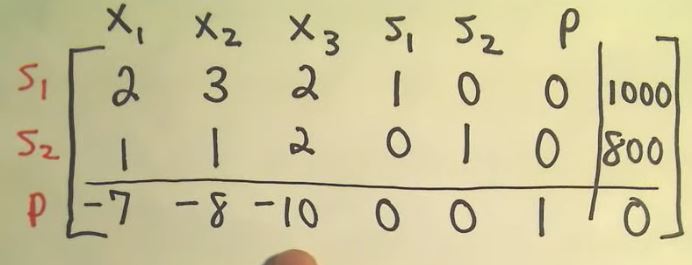 x₁ x₂ x₃ s₁ s₂ P
s₁ 2 3 2 1 0 0 1000
s₂ 1 1 2 0 1 0 800
P -7 -8 -10 0 0 1 0